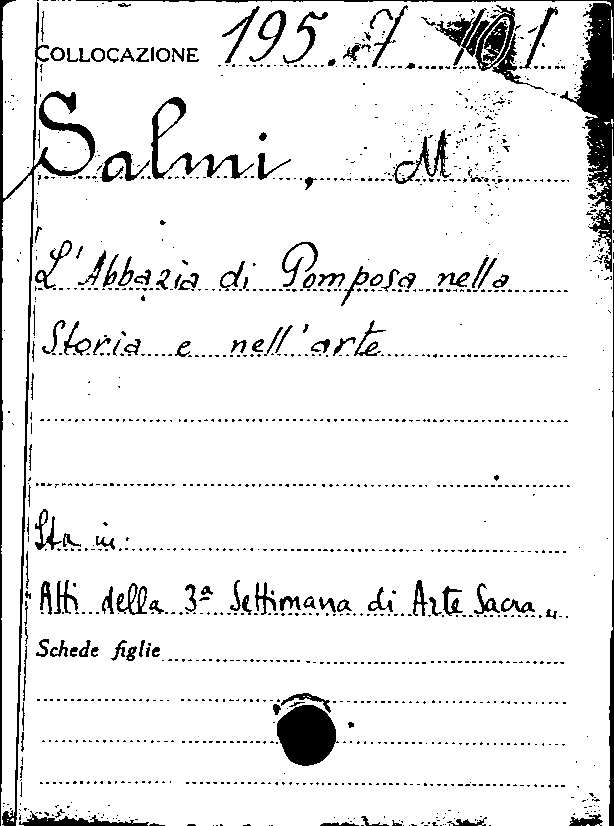 COLLOCAZIONE 195.7.101
Salmi, M
L'Abbazia di Pomposa nella
Storia e nell'arte
Sta in:
Atti della 3ª Settimana di Arte Sacra„
Schede figlie